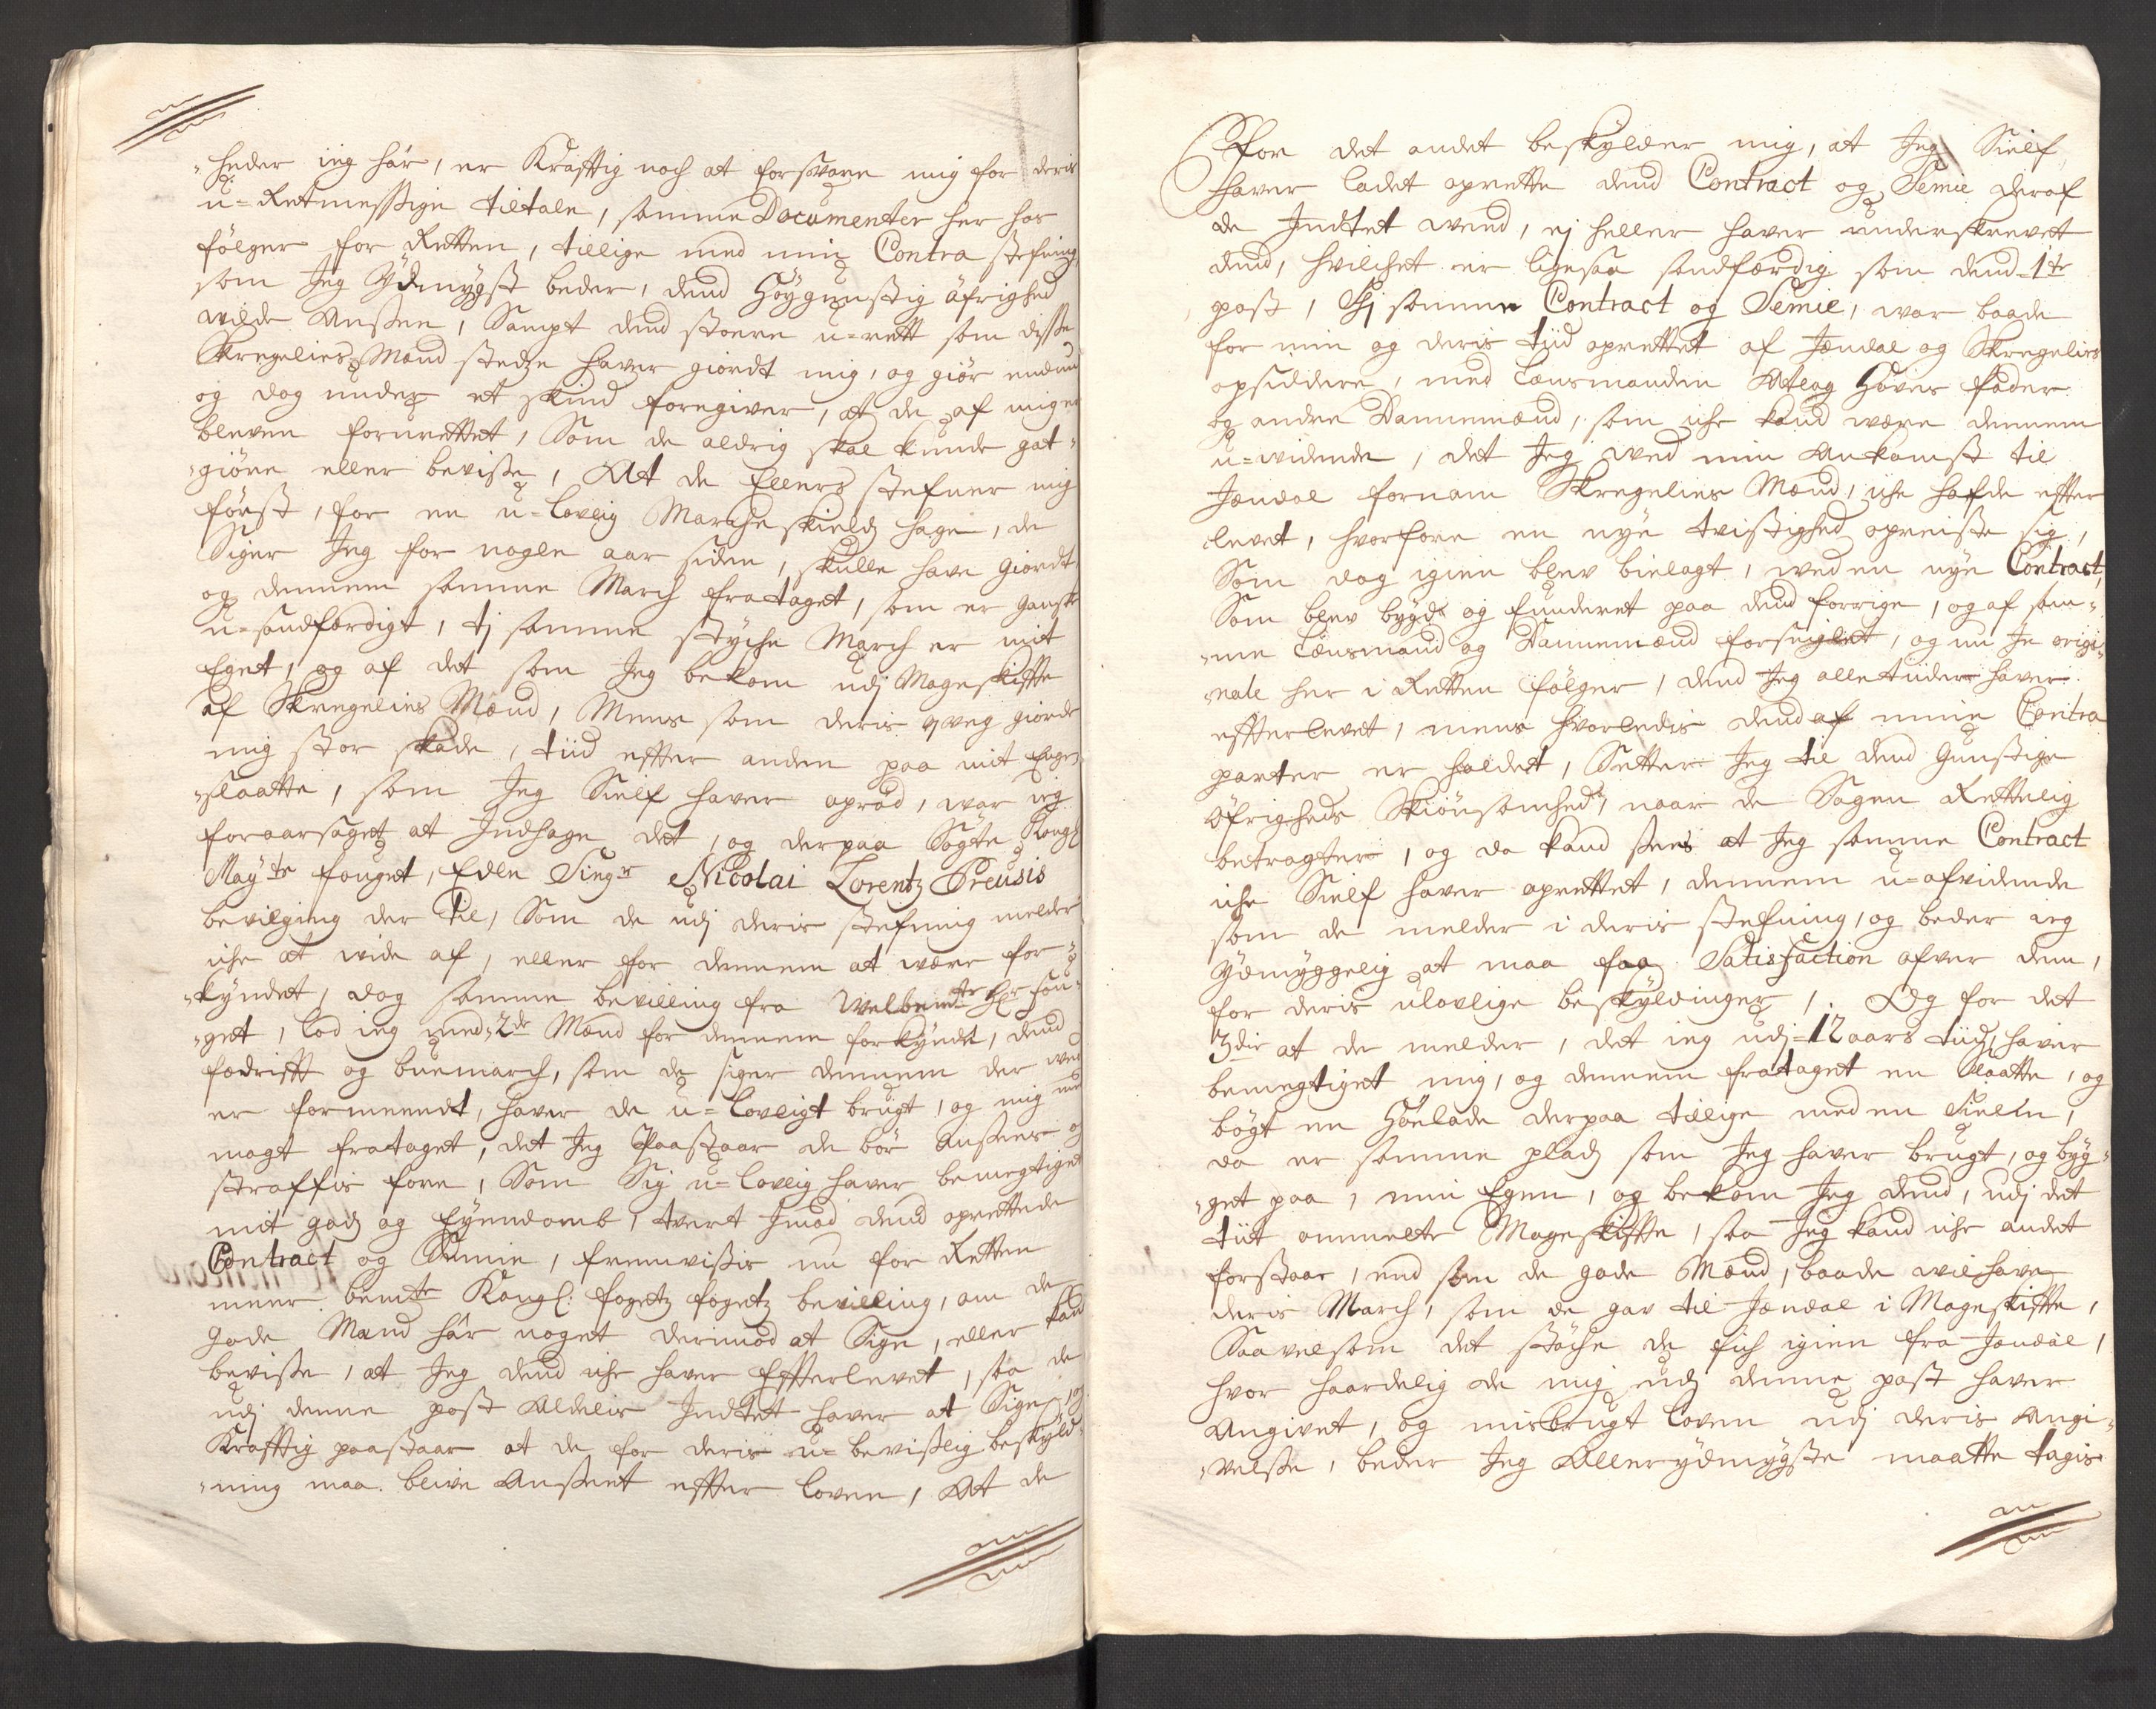 "heder ieg här, er Kraftig noch at forsvare mig for deris
u-Retmessige tiltale, samme Documenter her hos
följger for Retten, tillige med min Contra stefning,
som Jeg Ydmygst beder, dend Höygunstig äfrighed
wilde Ansee, Sampt dend stoere u-rett som disse
Skregelies Mænd stedze haver giordt mig, og giör endnu
og dog under et skind foregiver, at de af mig er
bleven forurettet, Som de aldrig skal kunde gat-
"giöre eller bevisse, At de Ellers stefner mig
först, for en u-Lovlig Marcheskields hage, de
Siger Jeg for nogle aar siden, skulle have giordt
og dennem samme March frataget, som er gandske
u-sandfærdigt, tj samme styche March er mit
Eget, og af det som Jeg bekom udj Mageskifte
af Skregelies Mænd, Mens som deris qveg giorde
mig stor skade, tiid effter anden paa mit Enge,
"slaatte, som Jeg Sielf haver oprød, war ieg
foraarsaget at Indhage det, og derpaa Søgte Kongl
Mayts fouget, Edle Sing:r Nicolai Lorentz Preusis
bevilging der til, Som de udj deris stefning melder
iche at wide af, eller for dennem at være for-
"kyndet, dog samme bevilling fra Welbemte Hr fou-
"get, lod ieg med 2de Mænd for dennem forkyndt, dend
fædrifft og buemarch, som de siger dennem der ved
er formeendt, haver de u-Lovligt brugt, og mig med
magt frataget, det Jeg Paastaar de bör Ansees og
straffis fore, Som Sig u-Lovlig haver bemegtiget
mit godz og Eyendomb, tvert Imod dend oprettede
Contract og Semie, fremvissis nu for Retten
meer bemte Kongl: fogetz fogetz bevilling, om de
gode Mænd här noget derimod at Sige, eller kand
bevisse, at Jeg dend iche haver Effterlevet, saa de
udj denne post Aldelis Indtet haver at Sige, og
Krafftig paastaar at de for deris u-bevisslig beskyld-
"ning maa blive Ansseet effter Loven, At de
For det andet beskylder mig, at Jeg Sielf
haver ladet oprette dend Contract og Semie deraf
de Indtet weed, ej heller haver underskrevet
dend, hvilchet er ligesaa sandfærdig som dend 1te
post, Thj samme Contract og Semie, war baade
for min og deris tiid oprettet af Jondal og Skregelies
opsiddere, med Lensmanden Atlag Hovis fader
og andre Dannemænd, som iche kand være dennem
u-widende, det Jeg wed min Ankomst til
Jondal fornam Skregelies Mænd, iche hafde effter
levet, hvorfore en nye tvistighed opreiste sig,
Som dog igien blev bielagt, wed en nye Contract,
Som blev bygdt og funderet paa dend forrige, og af sam-
"me Lensmand og Dannemænd forseiglet, og nu In origi-
"nale her i Retten følger, dend Jeg alle tiider haver
effterlevet, mens hvorledis dend af min Contra
parter er holdet, Setter Jeg til dend Gunstige
Öfrigheds Skiönsomhed, naar de Sagen Rettelig
betragter, og da kand sees at Jeg samme Contract
iche Sielf haver oprettet, dennem u-afvidende
som de melder i deris stefning, og beder ieg
ydmyggelig at maa faa Satisfaction ofver dem,
for deris ulovlige beskyldinger, Og for det
3die at de melder, det ieg udj 12 aars tiid, haver
bemegtiget mig, og dennem frataget en Slaatte, og
bögt en Höelade derpaa tillige med en Sieln,
da er samme pladz som Jeg haver brugt, og byg-
"get paa, min Egen, og bekom Jeg dend, udj det
tiit ommelte Mageskiffte, saa Jeg kand iche andet
forstaar, end som de gode Mænd, baade wil have
deris March, som de gav til Jondal i Mageskiffte,
Saavelsom det støche de fich igien fra Jondal,
hvor haardelig de mig udj denne post haver
Angivet, og misbrugt Loven udj deris Angi-
"velsse, beder Jeg Allerydmygste maatte tagis